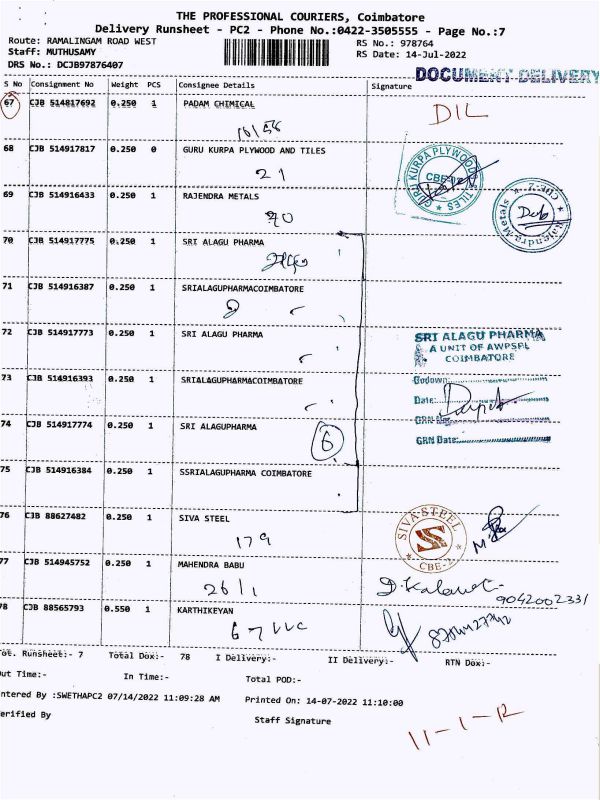 THE PROFESSIONAL COURIERS, Coimbatore
Delivery Runsheet - PC2 - Phone No.:0422-3505555 - Page No.:7
Route: RAMALINGAM ROAD WEST
RS No.: 978764
Staff: MUTHUSAMY
RS Date: 14-Jul-2022
DRS No.: DCJB97876407
DOCUMENT DELIVERY
S No Consignment No Weight PCS Consignee Details Signature
67 CJB 514817692 0.250 1 PADAM CHIMICAL
DIL
16/56
68 CJB 514917817 0.250 0 GURU KURPA PLYWOOD AND TILES
21
GURU KURPA PLYWOOD & TILES
CBE-02
69 CJB 514916433 0.250 1 RAJENDRA METALS
20
Rajendra Metals
CBE-2
70 CJB 514917775 0.250 1 SRI ALAGU PHARMA
71 CJB 514916387 0.250 1 SRIALAGUPHARMACOIMBATORE
72 CJB 514917773 0.250 1 SRI ALAGU PHARMA
SRI ALAGU PHARMA
A UNIT OF AWPSPL
COIMBATORE
73 CJB 514916393 0.250 1 SRIALAGUPHARMACOIMBATORE
Godown
Date:
GRN
GRN Date:
74 CJB 514917774 0.250 1 SRI ALAGUPHARMA
6
75 CJB 514916384 0.250 1 SSRIALAGUPHARMA COIMBATORE
76 CJB 88627482 0.250 1 SIVA STEEL
179
SIVA STEEL
S
CBE-2
77 CJB 514945752 0.250 1 MAHENDRA BABU
26/1
9042002331
78 CJB 88565793 0.550 1 KARTHIKEYAN
67
ot. Runsheet:- 7 Total Dox:- 78 I Delivery:- II Delivery:- RTN Dox:-
ut Time:- In Time:- Total POD:-
ntered By :SWETHAPC2 07/14/2022 11:09:28 AM Printed On: 14-07-2022 11:10:00
erified By Staff Signature
11-1-12